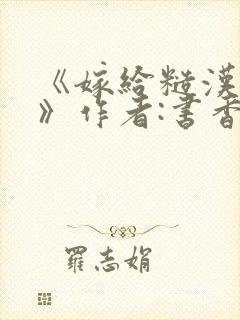 《嫁给糙汉
》作者:书香
罗志娟